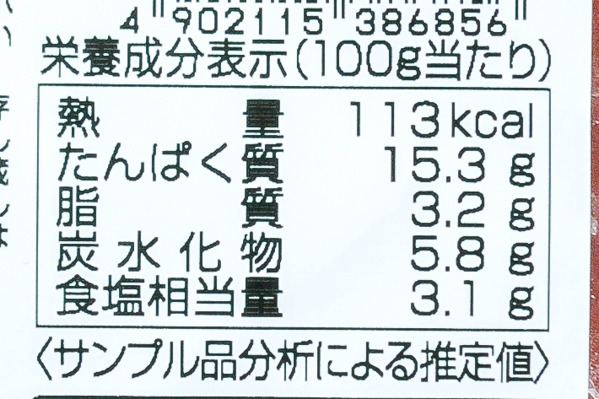 4 902115 386856
栄養成分表示(100g当たり)
熱量 113kcal
たんぱく質 15.3 g
脂質 3.2 g
炭水化物 5.8 g
食塩相当量 3.1 g
〈サンプル品分析による推定値〉